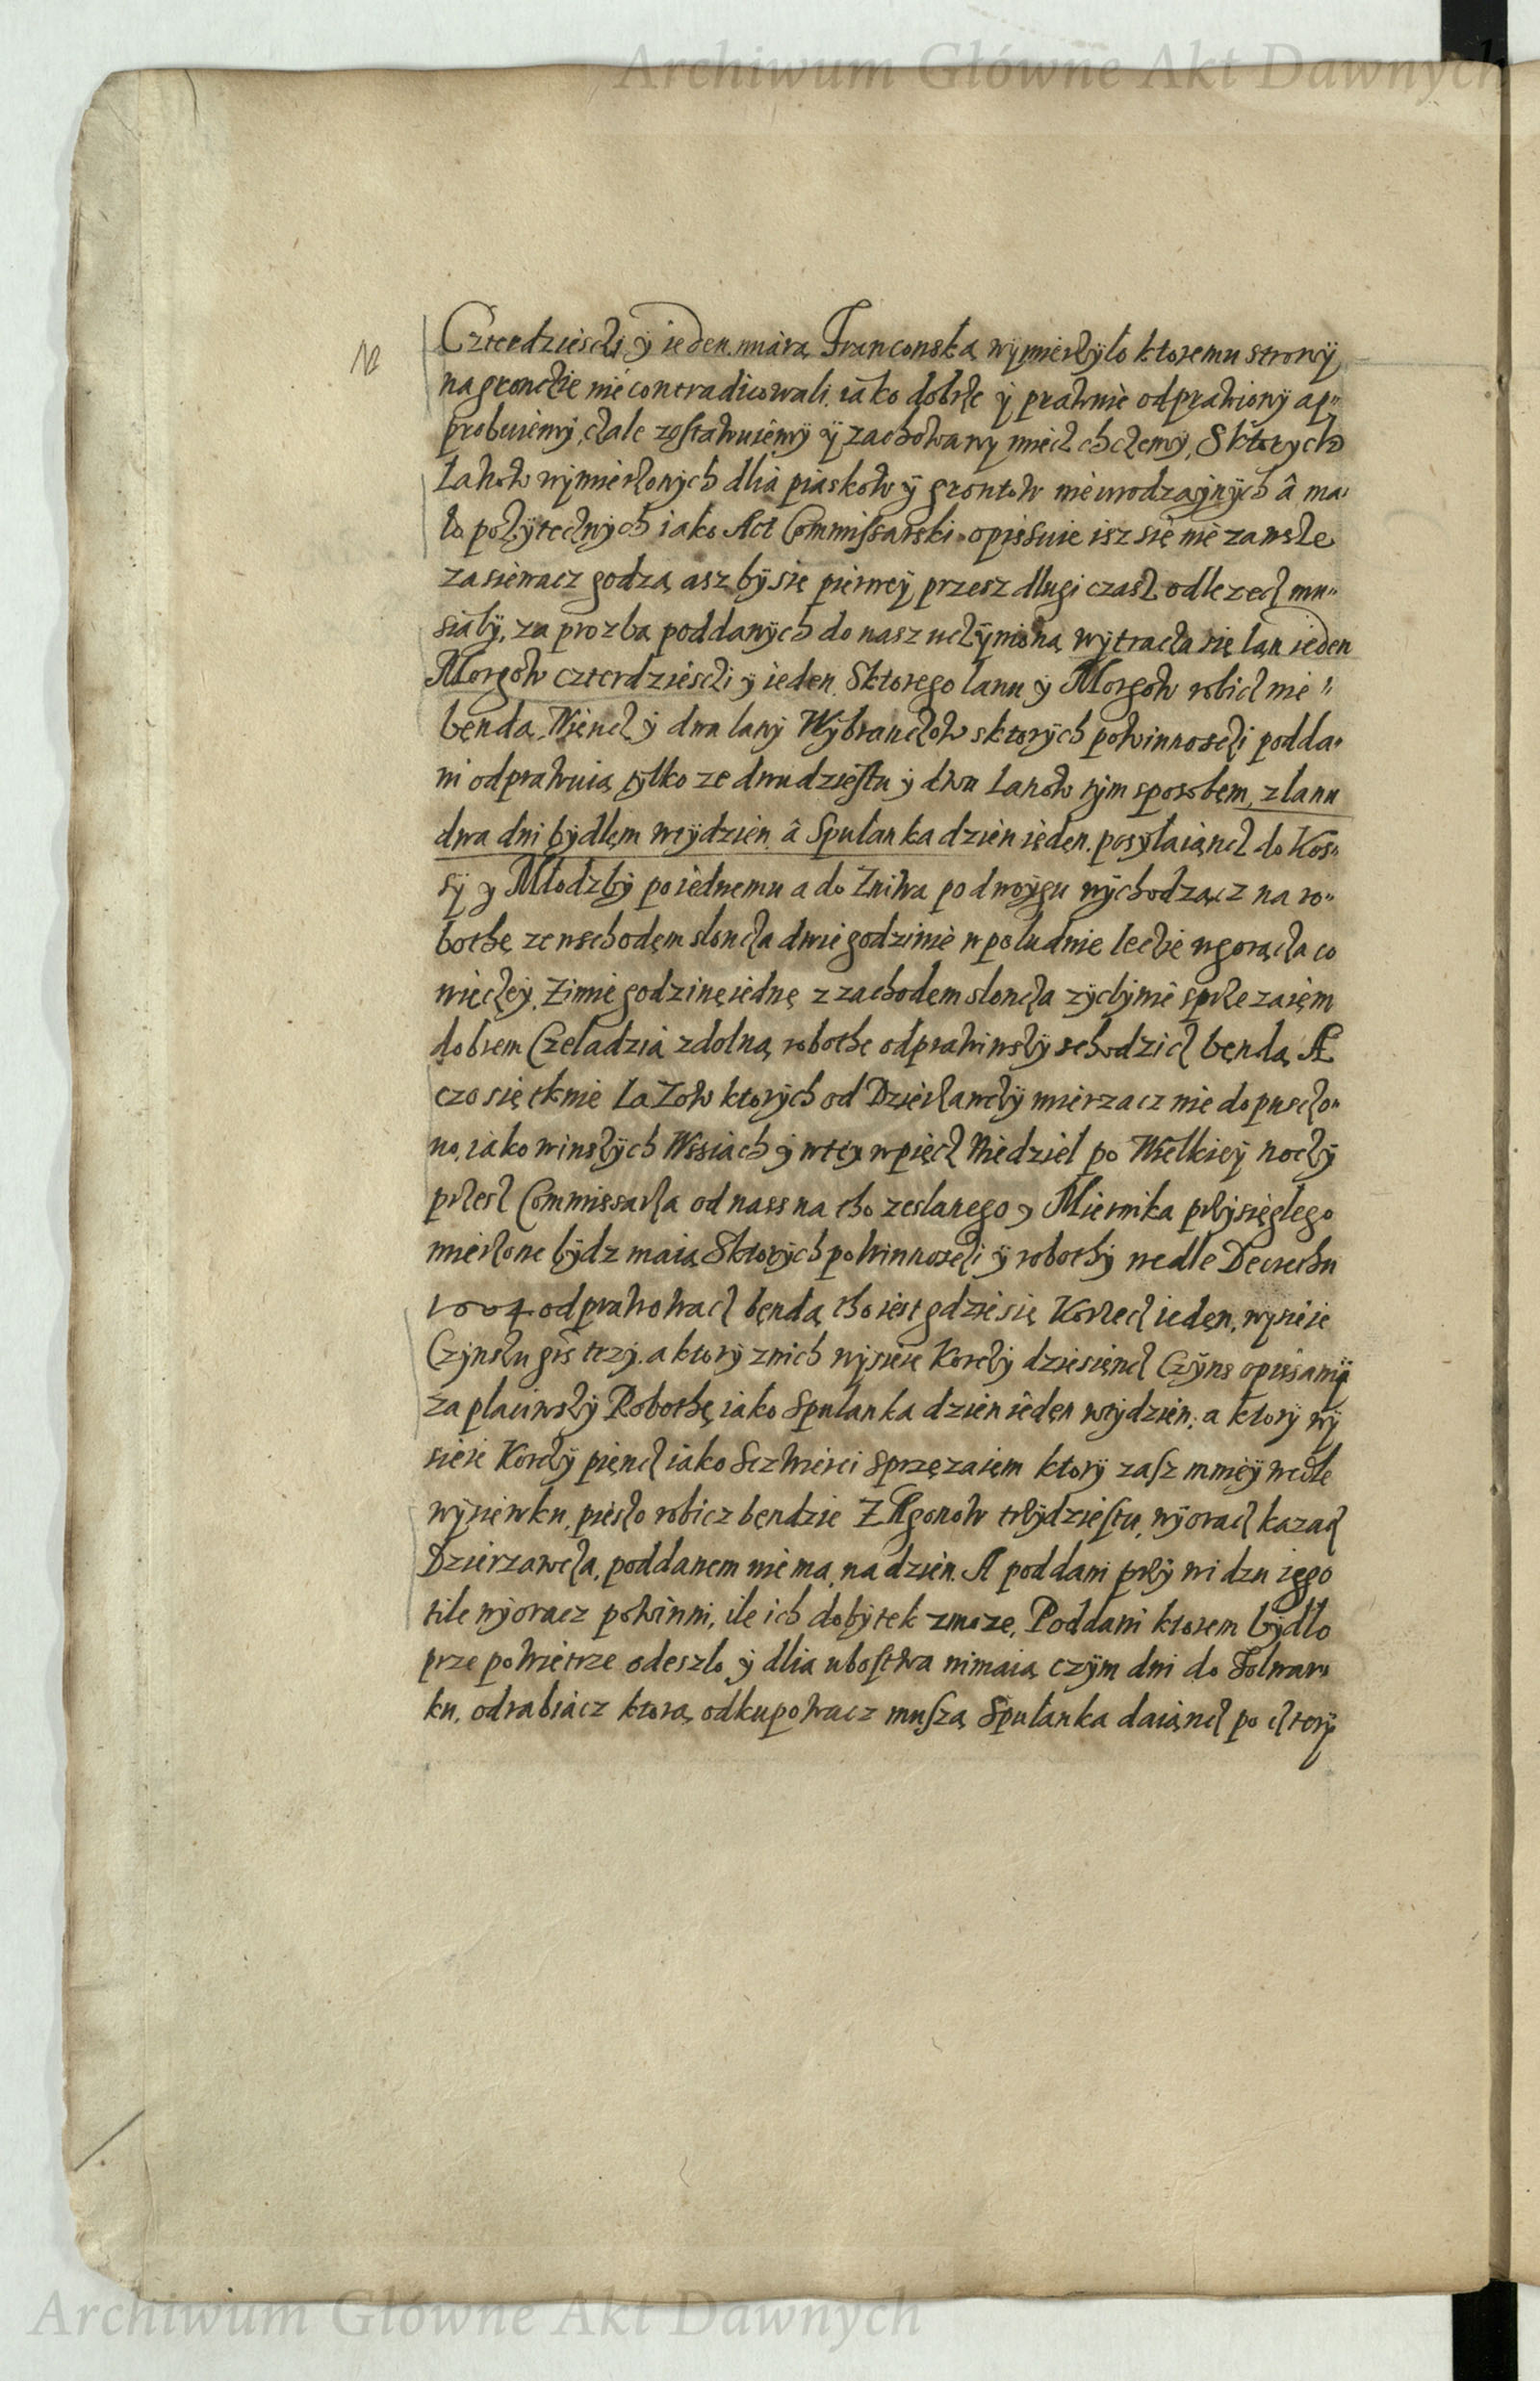 Archiwum Główne Akt Dawnych
NB
Czterdziesczi y ieden miarą Franconską wymierzyło ktoremu strony
na gronczie nie contradicowali iako dobrze y prawnie odprawiony ap„
probuiemy, czale zostawuiemy y zachowany miecz chczemy, Sktorych
Łanow wymierzonych dlia piaskow y grontow nieurodzaynych â ma„
ło pożytecznych iako Act Commissarski opissuie isz się nie zawsze
zasiewacz godzą, asz by się pierwey przesz długi czasz odlezecz mu„
siały, za prozbą poddanych do nasz uczynioną wytracza się łan ieden
Morgow czterdziesczi y ieden. Sktorego lanu y Morgow robicz nie„
będą, Niencz y dwa lany Wybranczow sktorych powinnosczi podda„
ni odprawuią tylko ze dwudziestu y dwu Lanow tym sposobem, z lanu
dwa dni bydłem wtydzien â Spułanka dzien ieden. posyłaiącz do Kos„
sy y Młodzby poiednemu a do Zniwa po dwoygu wychodzącz na ro„
bothę ze wschodem słoncza dwie godzinie wpołudnie leczie wgorącza co
więczey. Zimie godzinę iednę z zachodem słoncza zyczlynie sprzezaiem
dobrem Czeladzią zdolną robothe odprawiwszy schodzicz będą. A
czo się tknie Łazow ktorych od Dzierzawczy mierzacz nie dopusczo„
no, iako winszych Wssiach y wtey wpięcz Niedziel po Wielkiey noczy
przesz Commissarza od nass na tho zesłanego y Miernika przysięgłego
mierzone bydz maią Sktorych powinnosczi y robothy wedle Decrethu
1604 odprawowacz będą tho iest gdzie się Korzecz ieden, wysieie
Czynszu gr. trzy. a ktory znich wysieie Korczy dziesięncz Czyns opisany
zapłaciwszy Robothę iako Spułanka dzien ieden wtydzien, a ktory wy
sieie Korczy pięncz iako Sczwierci Sprzęzaiem ktory zasz mniey wedle
wysiewku, pieszo robicz bendzie Zagonow trzydziestu, wyoracz kazacz
Dzierzawcza, poddanem nie ma, na dzien. A poddani przy widzu iego
tile wyoracz powinni, ile ich dobytek zmoze, Poddani ktorem bydło
prze powietrze odeszło y dlia ubostwa nimaią czym dni do Folwar„
ku, odrabiacz ktorą odkupowacz muszą Spułanka daiącz po cztery
Archiwum Główne Akt Dawnych